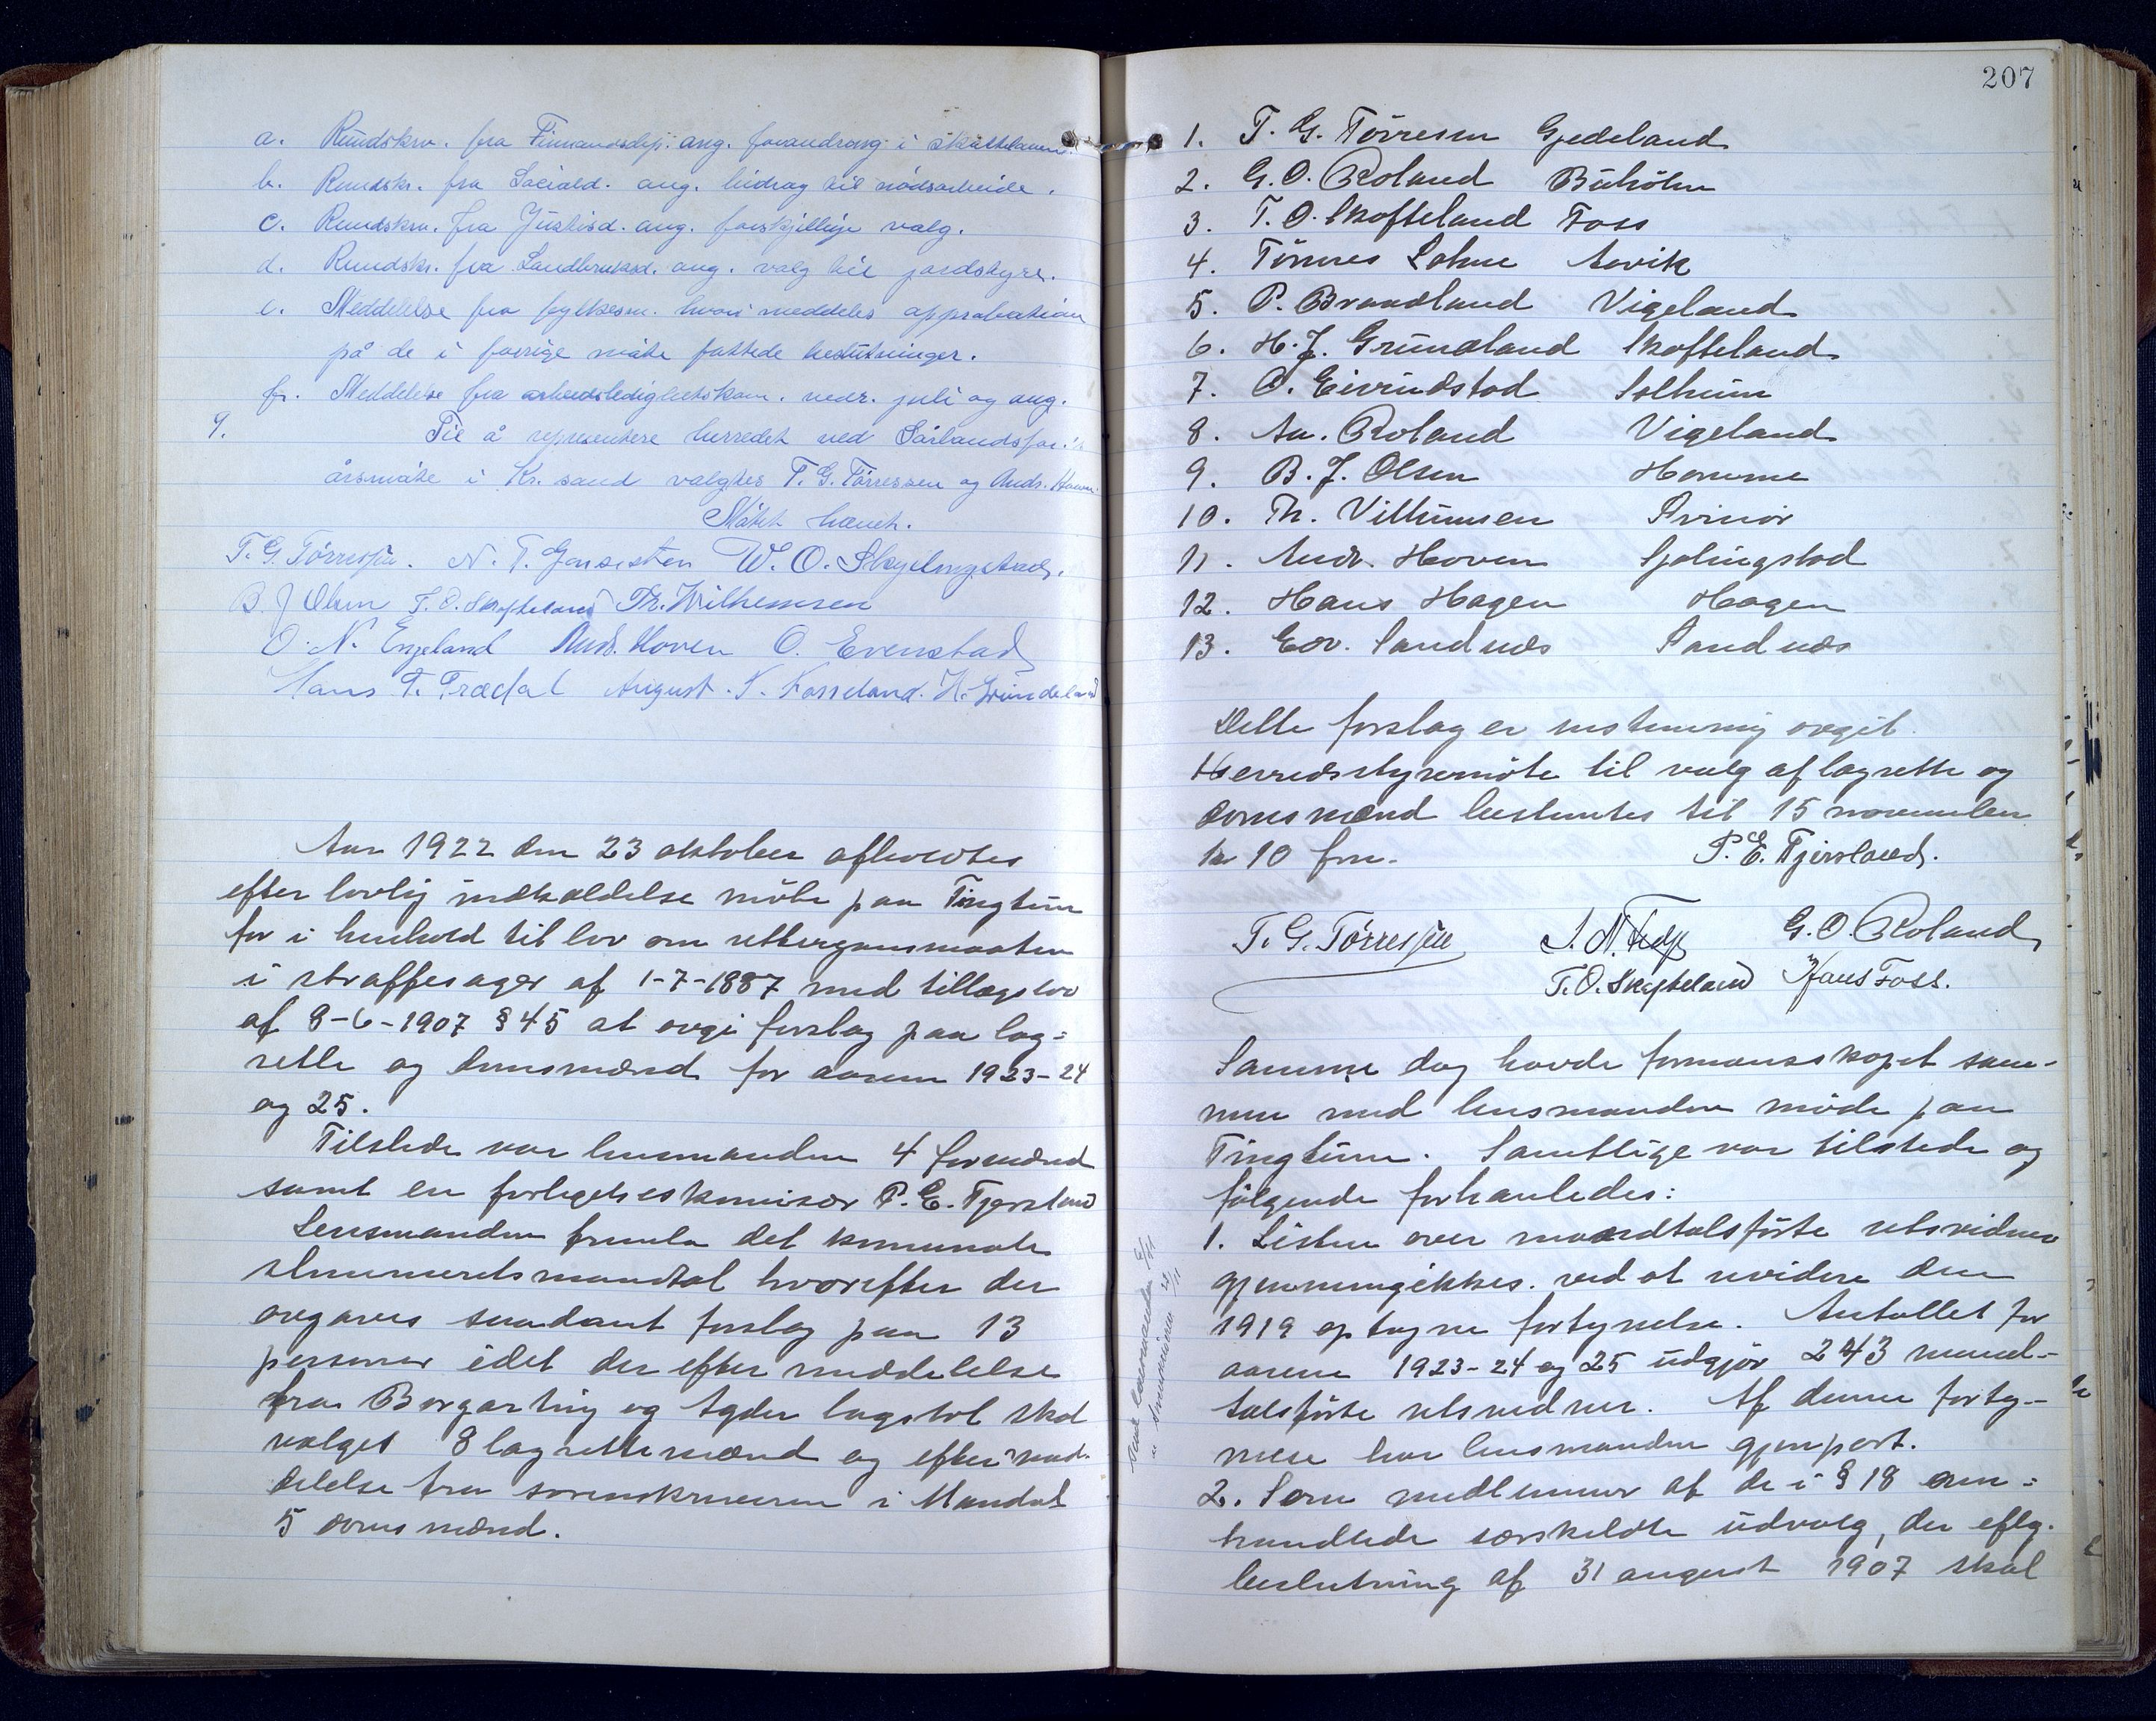 a. Rundskrv. fra Finansdep. ang. forandring i skatteloven.
b. Rundskr. fra Sociald. ang. bidrag til nödsarbeide.
c. Rundskrv. fra Justisd. ang. forskjellige valg.
d. Rundskr. fra Landbruksd. ang. valg til jordstyre.
e. Meddelelse fra fylkesm. hvori meddeles approbation
på de i forrige måte fattede beslutninger.
f. Meddelelse fra arbeidsledighetskom. vedr. juli og aug.
9. Til å representere herredet ved Sörlandsfor.
årsmöte i Kr. sand valgtes T. G. Törressen og Andr. Hoven.
Mötet hævet.
T. G. Törressen. N. T. W. O. Skjelingstad.
B. J Olsen T. O. Skofteland Th. Wilhemsen
O. N. Engeland Andr. Hoven O. Evenstad
Hans T. Trædal August. K. Fosseland. H. Grundeland
Aar 1922 den 23 oktober afholdtes
efter lovlig indkaldelse möte paa Tingtun
for i henhold til lov om rettergansmaaten
i straffesager af 1-7-1887 med tillægslov
af 8-6-1907 § 45 at avgi forslag paa lag=
rette og domsmænd for aarene 1923-24
og 25.
Tilstede var lensmanden 4 formænd
samt en forligelseskomisær P. E. Tjersland
Lensmanden fremla det komunale
stemmeretsmandtal hvorefter der
avgaves saadant forslag paa 13
personer idet der efter meddelelse
fra Borgarting og Agder lagstol skal
vælges 8 lagrettemænd og efter med-
delelse fra sorenskriveren i Mandal
5 domsmænd.
207
1. T. G. Törresen Gjedeland
2. G. O. Roland Buholm
3. T. O. Skofteland Foss
4. Tönnes Lohne Aavik
5. P. Brandland Vigeland
6. H. J. Grundland Skofteland
7. O. Eivindstad Solhum
8. Au. Roland Vigeland
9. B. J. Olsen Homme
10. Th. Vilhumsen Svinör
11. Andr. Hoven Sjölingstad
12. Hans Hagen Hagen
13. Edv. Sandnæs Sandnæs
Dette forslag er enstemmig avgit.
Herredsstyremöte til valg af lagrette og
domsmænd bestemtes til 15 november
kl 10 fm. P. E. Tjersland.
T. G. Törressen G. O. Roland
T. O. Skofteland Hans Foss.
Samme dag havde formanskapet sam-
men med lensmanden möde paa
Tingtun. Samtlige var tilstede og
fölgende forhanledes:
1. Listen over mandtalsförte retsvidner
gjennemgikkes. ved at revidere den
1919 optagne fortegnelse. Antallet for
aarene 1923-24 og 25 udgjör 243 mand-
talsförte retsvidner. Af denne forteg-
nelse har lensmanden gjenpart.
2. Som medlemmer af de i § 18 om=
handlede særskildte udvalg, der eftg.
beslutning af 31 august 1907 skal